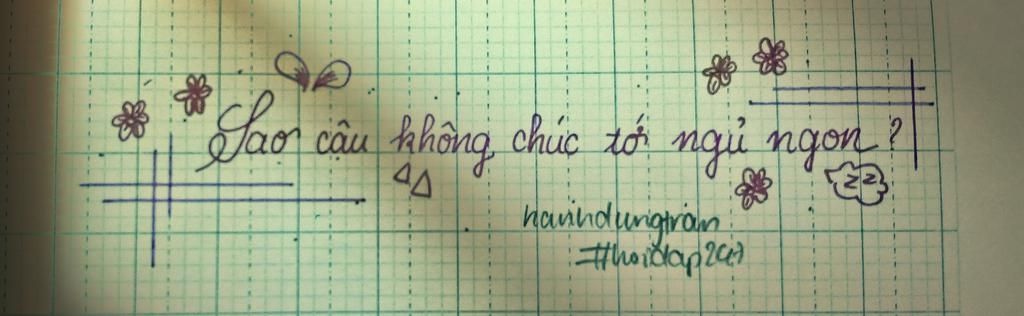 Sao cậu không chúc tớ ngủ ngon ?
zz
#hoidap2(+)